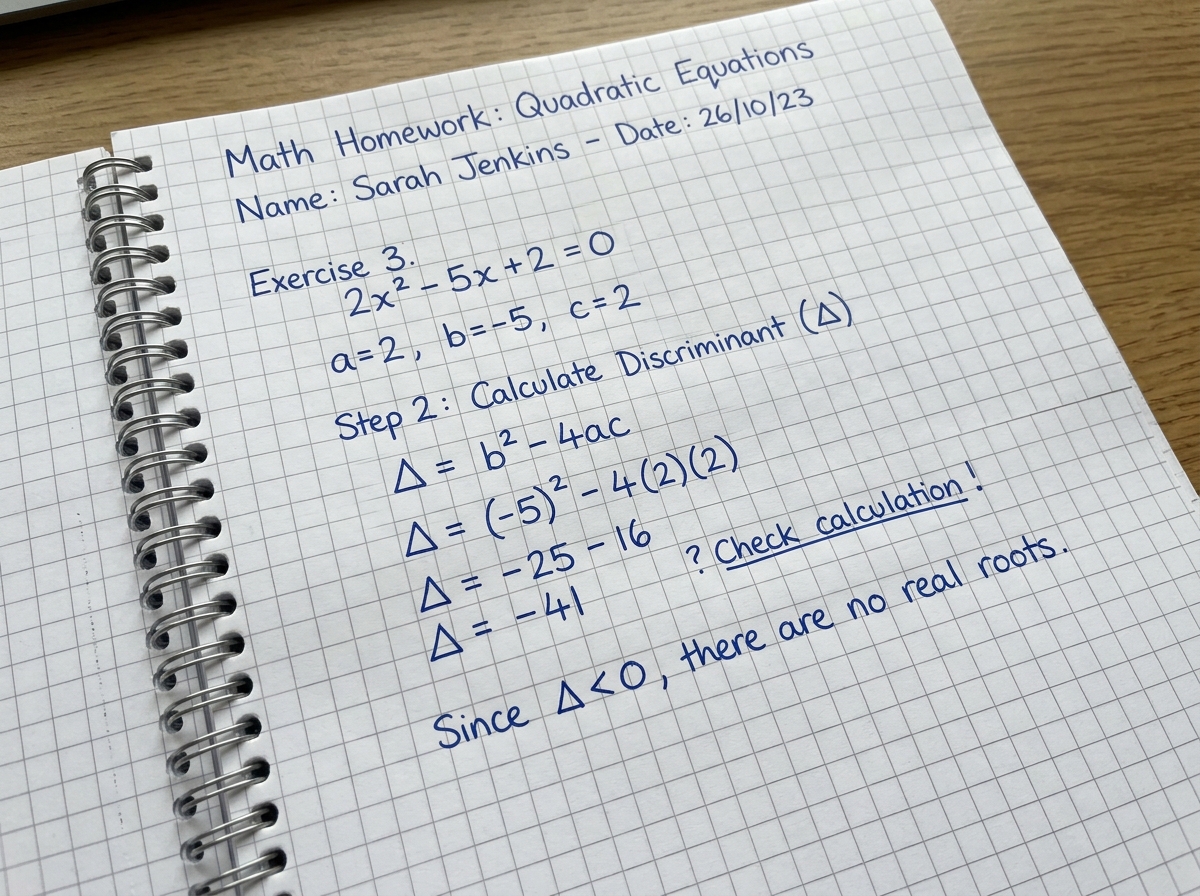 Math Homework: Quadratic Equations
Name: Sarah Jenkins - Date: 26/10/23
Exercise 3.
2x² - 5x + 2 = 0
a=2, b=-5, c=2
Step 2: Calculate Discriminant (Δ)
Δ = b² - 4ac
Δ = (-5)² - 4(2)(2)
Δ = -25 - 16 ? Check calculation!
Δ = -41
Since Δ<0, there are no real roots.